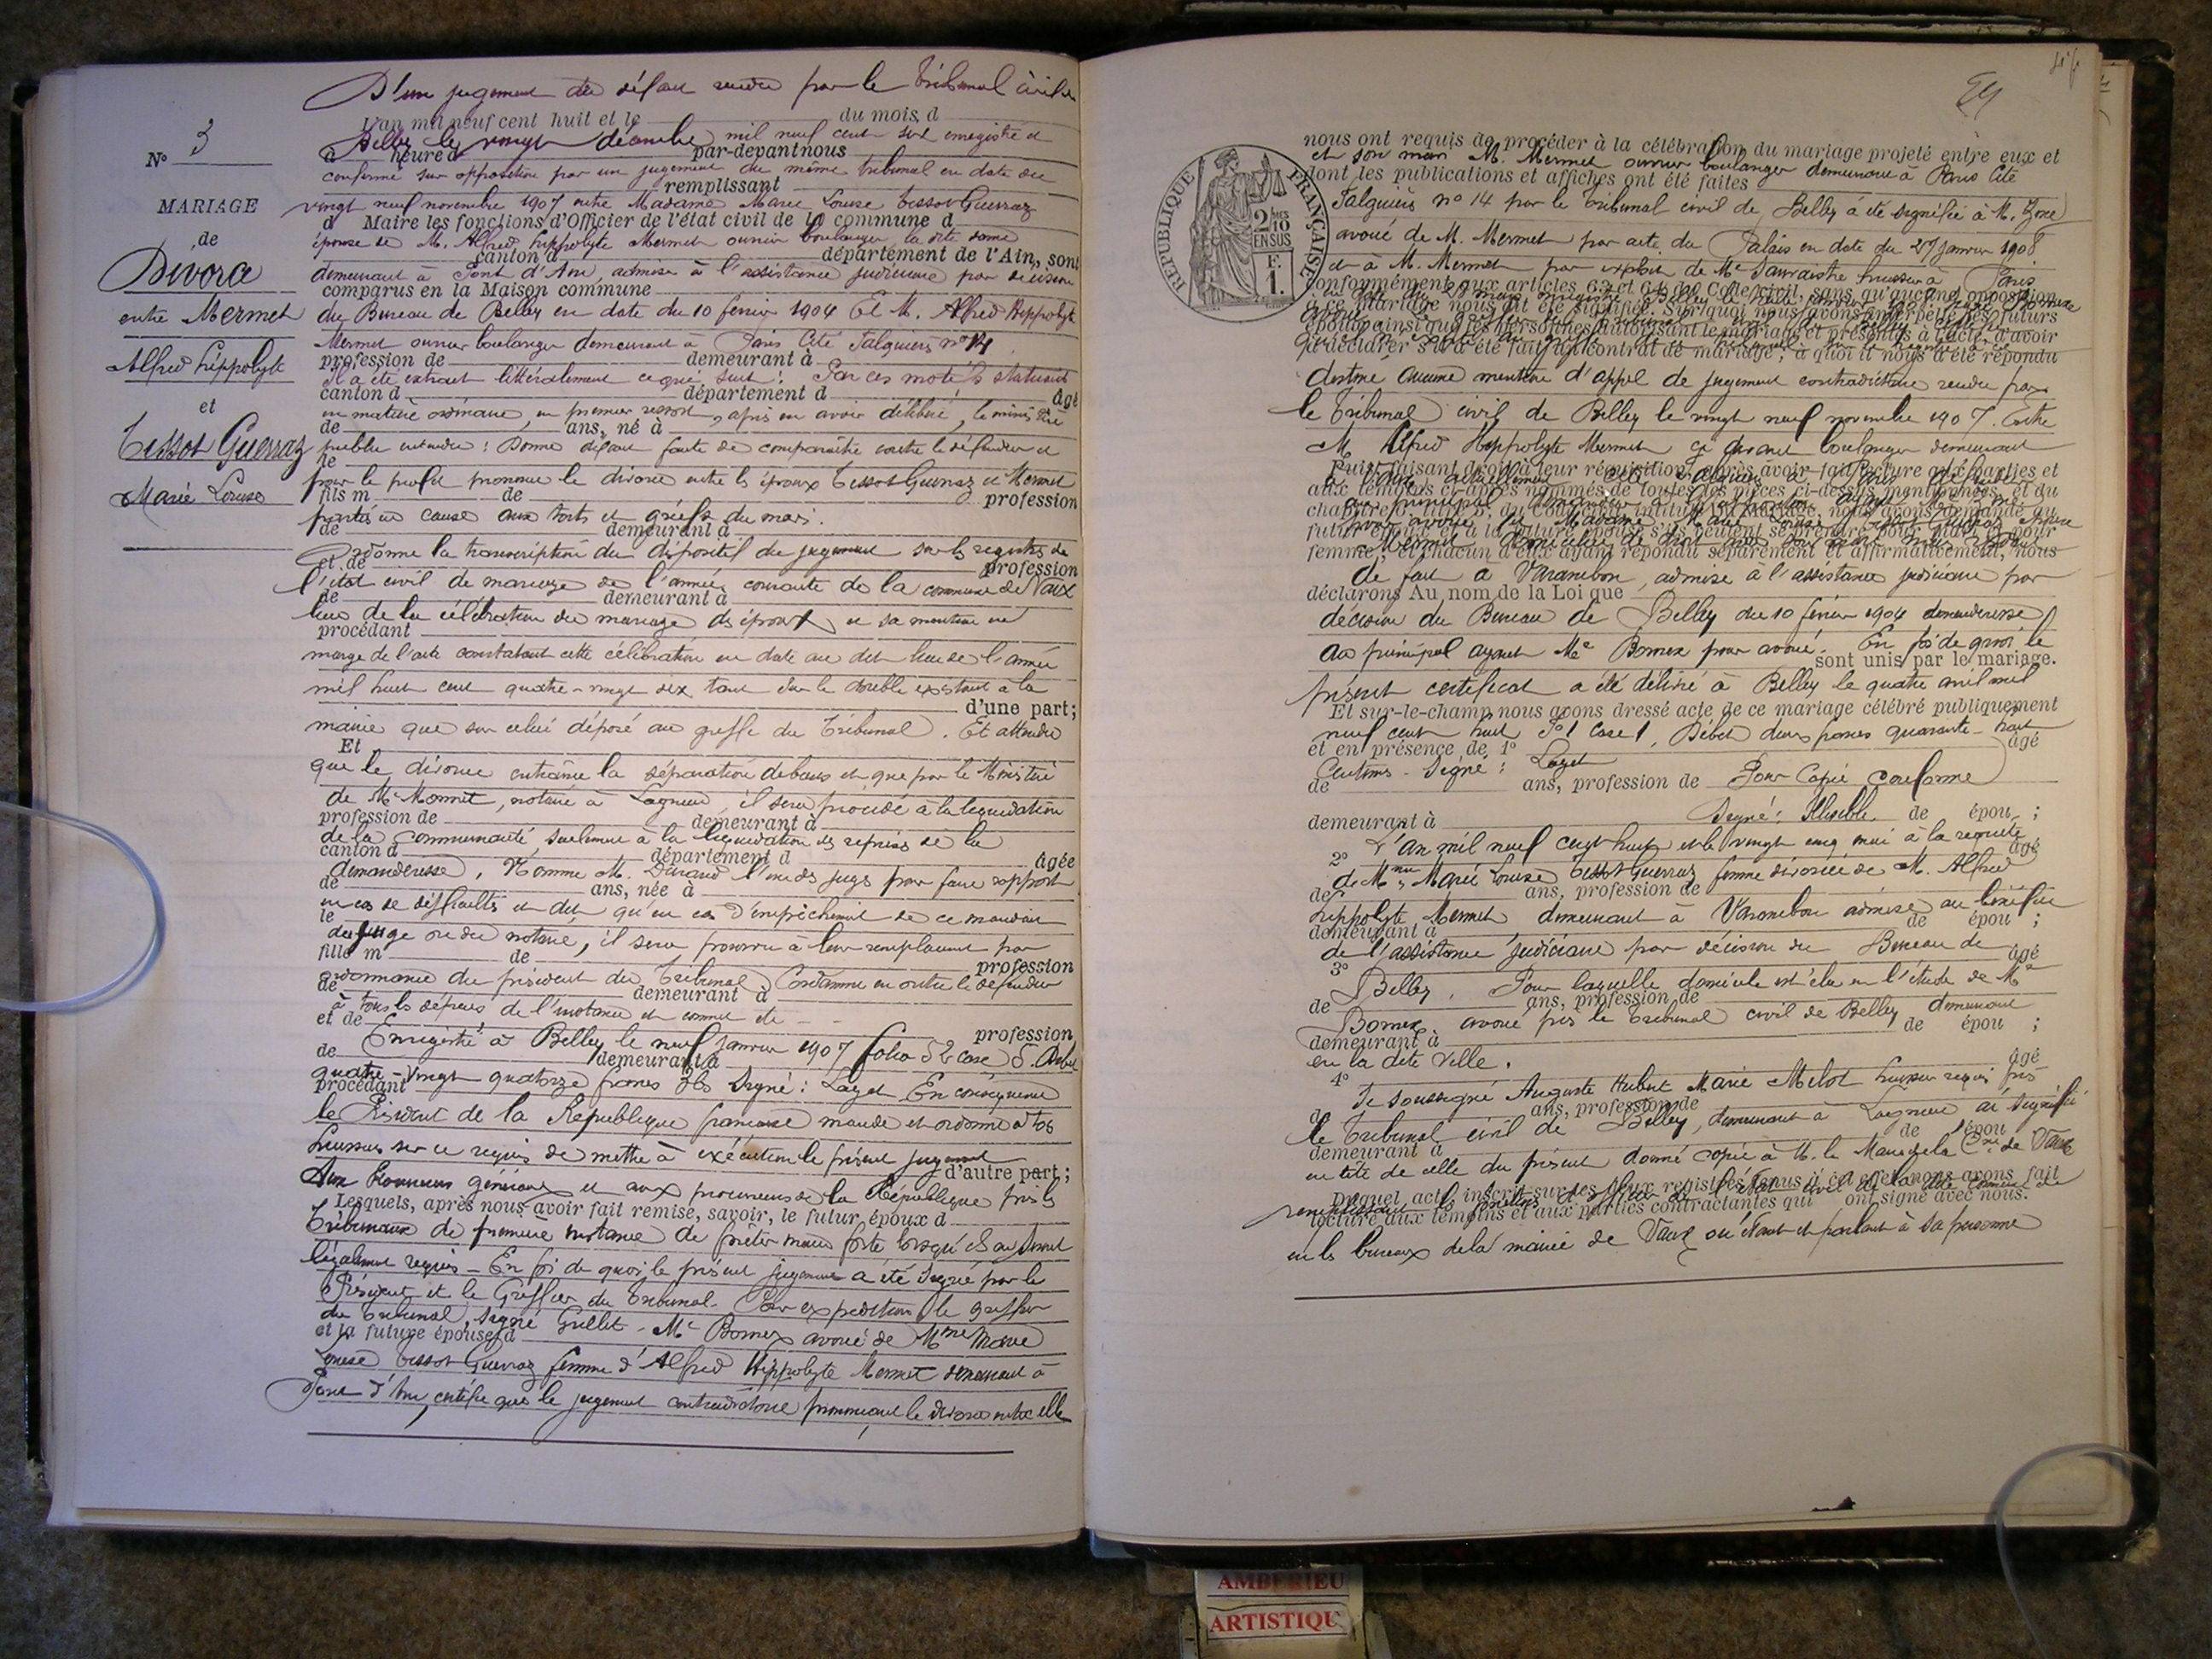 D'un jugement de défaut rendu par le Tribunal civil de
L'an mil neuf cent huit et le du mois d
Belley le vingt décembre mil neuf cent six enregistré et
à heure d par-devant nous
confirmé sur opposition par un jugement du même tribunal en date du
remplissant
vingt neuf novembre 1907 entre Madame Marie Louise Tissot Guerraz
d Maire les fonctions d'Officier de l'état civil de la commune d
épouse de M. Alfred Hippolyte Mermet ouvrier boulanger la dite dame
canton d département de l'Ain, sont
demeurant à Pont d'Ain, admise à l'assistance judiciaire par décision
comparus en la Maison commune
du Bureau de Belley en date du 10 février 1904 Et M. Alfred Hippolyte
Mermet ouvrier boulanger demeurant à Paris Cité Falguière n° 14
profession de demeurant à
Il a été extrait littéralement ce qui suit : Par ces motifs statuant
canton d département d âgé
en matière ordinaire, en premier ressort, après en avoir délibéré, le ministère
de ans, né à
public entendu : Donne défaut faute de comparaître contre le défendeur et
le
pour le profit prononce le divorce entre les époux Tissot Guerraz et Mermet
fils m de profession
parties en cause aux torts et griefs du mari.
de demeurant à
Ordonne la transcription du dispositif du jugement sur les registres de
et de profession
l'état civil de mariage de l'année courante de la commune de Vaux
de demeurant à
lieu de la célébration du mariage des époux et sa mention en
procédant
marge de l'acte constatant cette célébration en date du dix huit de l'année
mil huit cent quatre-vingt dix tant sur le double existant à la
d'une part;
mairie que sur celui déposé au greffe du Tribunal. Et attendu
Et
que le divorce entraîne la séparation de biens et que par le Ministère
de Me Monnet, notaire à Lagnieu, il sera procédé à la liquidation
profession de demeurant à
de la communauté, seulement à la liquidation des reprises de la
canton d département d âgée
demanderesse. Nomme M. Durand l'un des juges pour faire rapport
de ans, née à
en cas de difficultés et dit qu'en cas d'empêchement de ce
le
du juge ou du notaire, il sera pourvu à leur remplacement par
fille m de profession
ordonnance du président du Tribunal. Condamne en outre le défendeur
de demeurant à
à tous les dépens de l'instance et
et de profession
Enregistré à Belley le neuf janvier 1907 folio 52 case 5.
de demeurant à
quatre-vingt quatorze francs Signé : Lazet En conséquence
procédant
le Président de la République française mande et ordonne à tous
huissiers sur ce requis de mettre à exécution le présent jugement
d'autre part;
Aux procureurs généraux et aux procureurs de la République près les
Lesquels, après nous avoir fait remise, savoir, le futur époux d
Tribunaux de première instance de prêter main forte lorsqu'ils en seront
légalement requis - En foi de quoi le présent jugement a été signé par le
Président et le Greffier du Tribunal. Pour expédition le greffier
du Tribunal, signé Grillet - Me Bornex avoué de Mme Marie
et la future épouse d
Louise Tissot Guerraz femme d'Alfred Hippolyte Mermet demeurant à
Pont d'Ain, certifie que le jugement contradictoire prononçant le divorce entre elle
N° 3
MARIAGE
de
Divorce
entre Mermet
Alfred Hippolyte
et
Tissot Guerraz
Marie Louise
59
REPUBLIQUE FRANÇAISE
2/10 EN SUS
F. 1.
nous ont requis de procéder à la célébration du mariage projeté entre eux et
et son mari M. Mermet ouvrier boulanger demeurant à Paris Cité
dont les publications et affiches ont été faites
Falguière n° 14 par le Tribunal civil de Belley a été signifié à M.
avoué de M. Mermet par acte du Palais en date du 27 janvier 1908
et à M. Mermet par exploit de Me huissier à Paris
conformément aux articles 63 et 64 du Code civil, sans qu'aucune opposition
à ce mariage nous ait été signifiée. Sur quoi nous avons interpellé les futurs
époux ainsi que les personnes autorisant le mariage et présentes à l'acte, d'avoir
à déclarer s'il a été fait un contrat de mariage; à quoi il nous a été répondu
destiné aucune mention d'appel de jugement contradictoire rendu par
le Tribunal civil de Belley le vingt neuf novembre 1907. Entre
M Alfred Hippolyte Mermet ci devant boulanger demeurant
Puis, faisant droit à leur réquisition, après avoir fait lecture aux parties et
aux témoins ci-après nommés de toutes les pièces ci-dessus mentionnées, et du
futur époux et à la future épouse s'ils veulent se prendre pour mari et pour
femme; et chacun d'eux ayant répondu séparément et affirmativement, nous
de fait à Varambon, admise à l'assistance judiciaire par
déclarons Au nom de la Loi que
décision du Bureau de Belley du 10 février 1904 demanderesse
au principal ayant Me Bornex pour avoué. En foi de quoi le
sont unis par le mariage.
présent certificat a été délivré à Belley le quatre avril mil
Et sur-le-champ nous avons dressé acte de ce mariage célébré publiquement
neuf cent huit F° 1 Case 1, Débet deux francs quarante-huit
et en présence de 1° âgé
Centimes - Signé : Lazet
de ans, profession de Pour Copie Conforme
demeurant à Signé : Illisible. de épou ;
L'an mil neuf cent huit et le vingt cinq mai à la requête
2° âgé
de Mme Marie Louise Tissot Guerraz femme divorcée de M. Alfred
de ans, profession de
Hippolyte Mermet demeurant à Varambon admise au bénéfice
demeurant à de épou ;
de l'assistance judiciaire par décision du Bureau de
3° âgé
Belley. Pour laquelle domicile est élu en l'étude de Me
de ans, profession de
Bornex avoué près le Tribunal civil de Belley demeurant
demeurant à de épou ;
en la dite Ville.
4° âgé
Je soussigné Auguste Hubert Marie Melot huissier reçu près
de ans, profession de
le Tribunal civil de Belley, demeurant à Lagnieu ai signifié
demeurant à de épou
en tête de celle du présent donné copie à M. le Maire de la Cne de Vaux
Duquel acte, inscrit sur les deux registres tenus à cet effet, nous avons fait
remplissant les fonctions d'officier de l'état civil de la dite commune de
lecture aux témoins et aux parties contractantes qui ont signé avec nous.
en les bureaux de la mairie de Vaux où étant et parlant à sa personne
AMBERIEU
ARTISTIQU